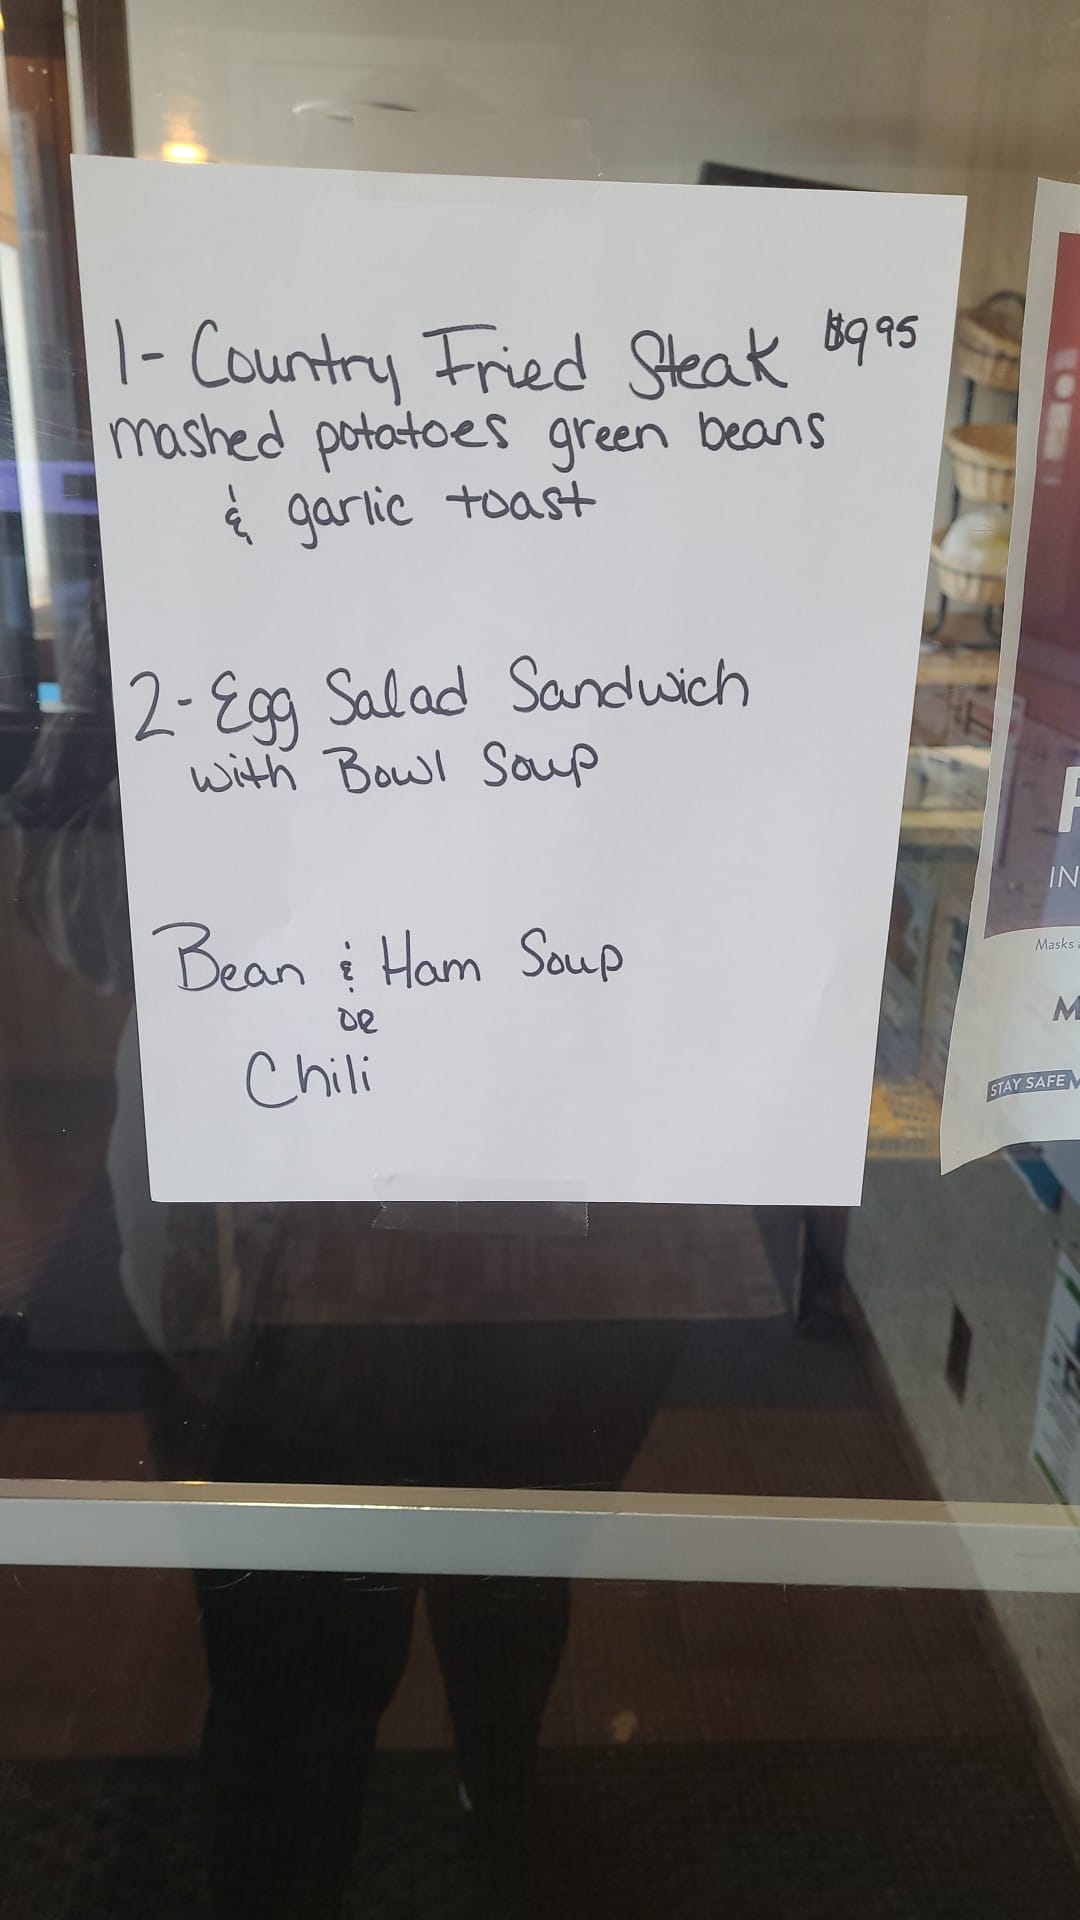 1- Country Fried Steak $9.95
mashed potatoes green beans
& garlic toast
2- Egg Salad Sandwich
with Bowl Soup
Bean & Ham Soup
or
Chili
IN
Masks
STAY SAFE